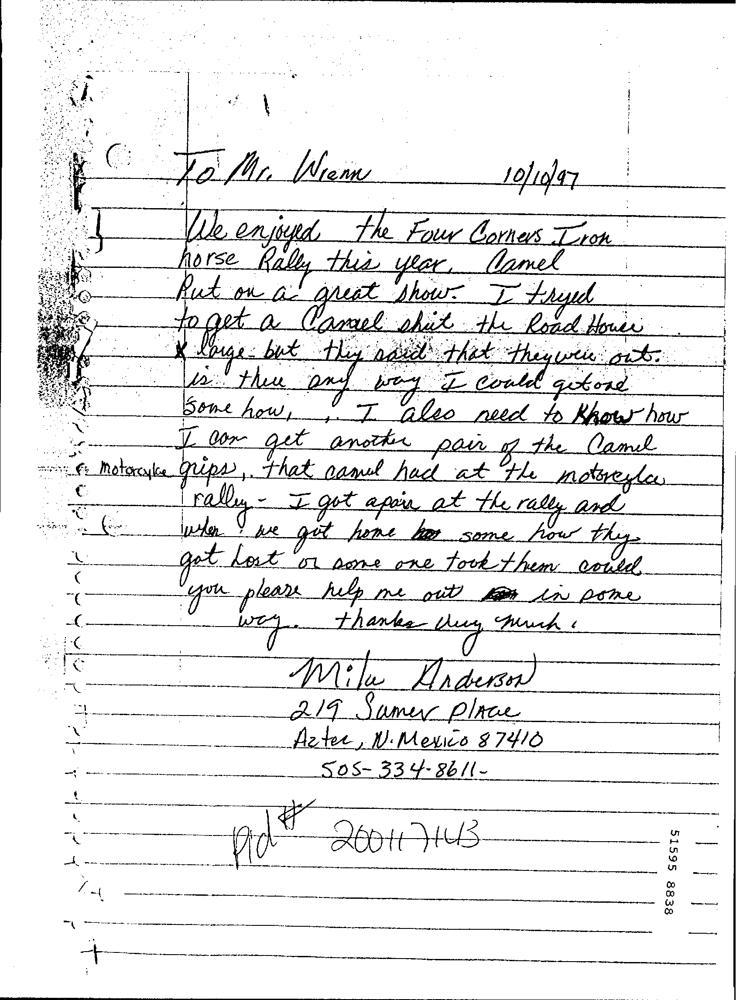 To Mr. Wrenn 10/10/97
We enjoyed the Four Corners Iron
horse Rally this year. Camel
Put on a great show. I tryed
to get a Camel shirt the Road House
X large but they said that they were out.
is there any way I could get one
Some how, , I also need to Know how
I can get another pair of the Camel
motorcylce grips, that camel had at the motorcylce
ralley - I got a pair at the rally and
when we got home some how they
got Lost or some one took them could
you please help me out in some
way. thanks very much.
Mike Anderson
219 Sumer Place
Aztec, N. Mexico 87410
505-334-8611-
Pid # 200117143
51595 8838